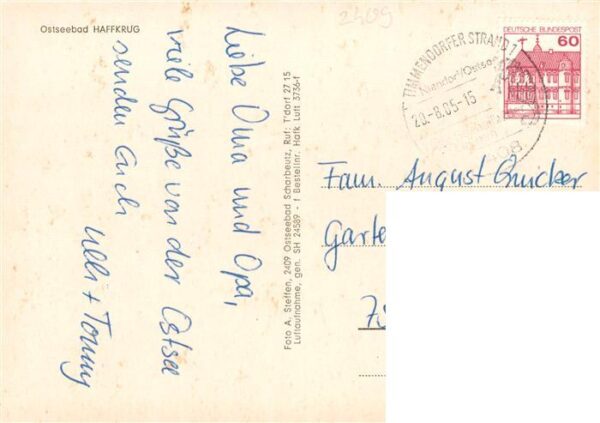 Ostseebad HAFFKRUG
Liebe Oma und Opa,
viele Grüße von der Ostsee
senden Euch
Ulli + Tommy
Foto A. Steffen, 2409 Ostseebad Scharbeutz, Ruf: T'dorf 27 15
Luftaufnahme, gen. SH 24589 - f Bestellnr. Hafk Luft 3736-f
2409
TIMMENDORFER STRAND 1
Niendorf/Ostsee
20.-8.85-15
DEUTSCHE BUNDESPOST
60
Fam. August
Garte
7